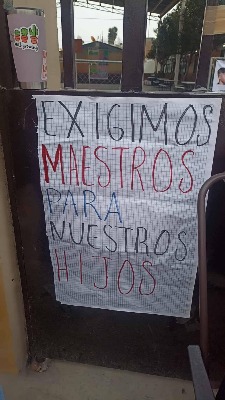 EXIGIMOS
MAESTROS
PARA
NUESTROS
HIJOS